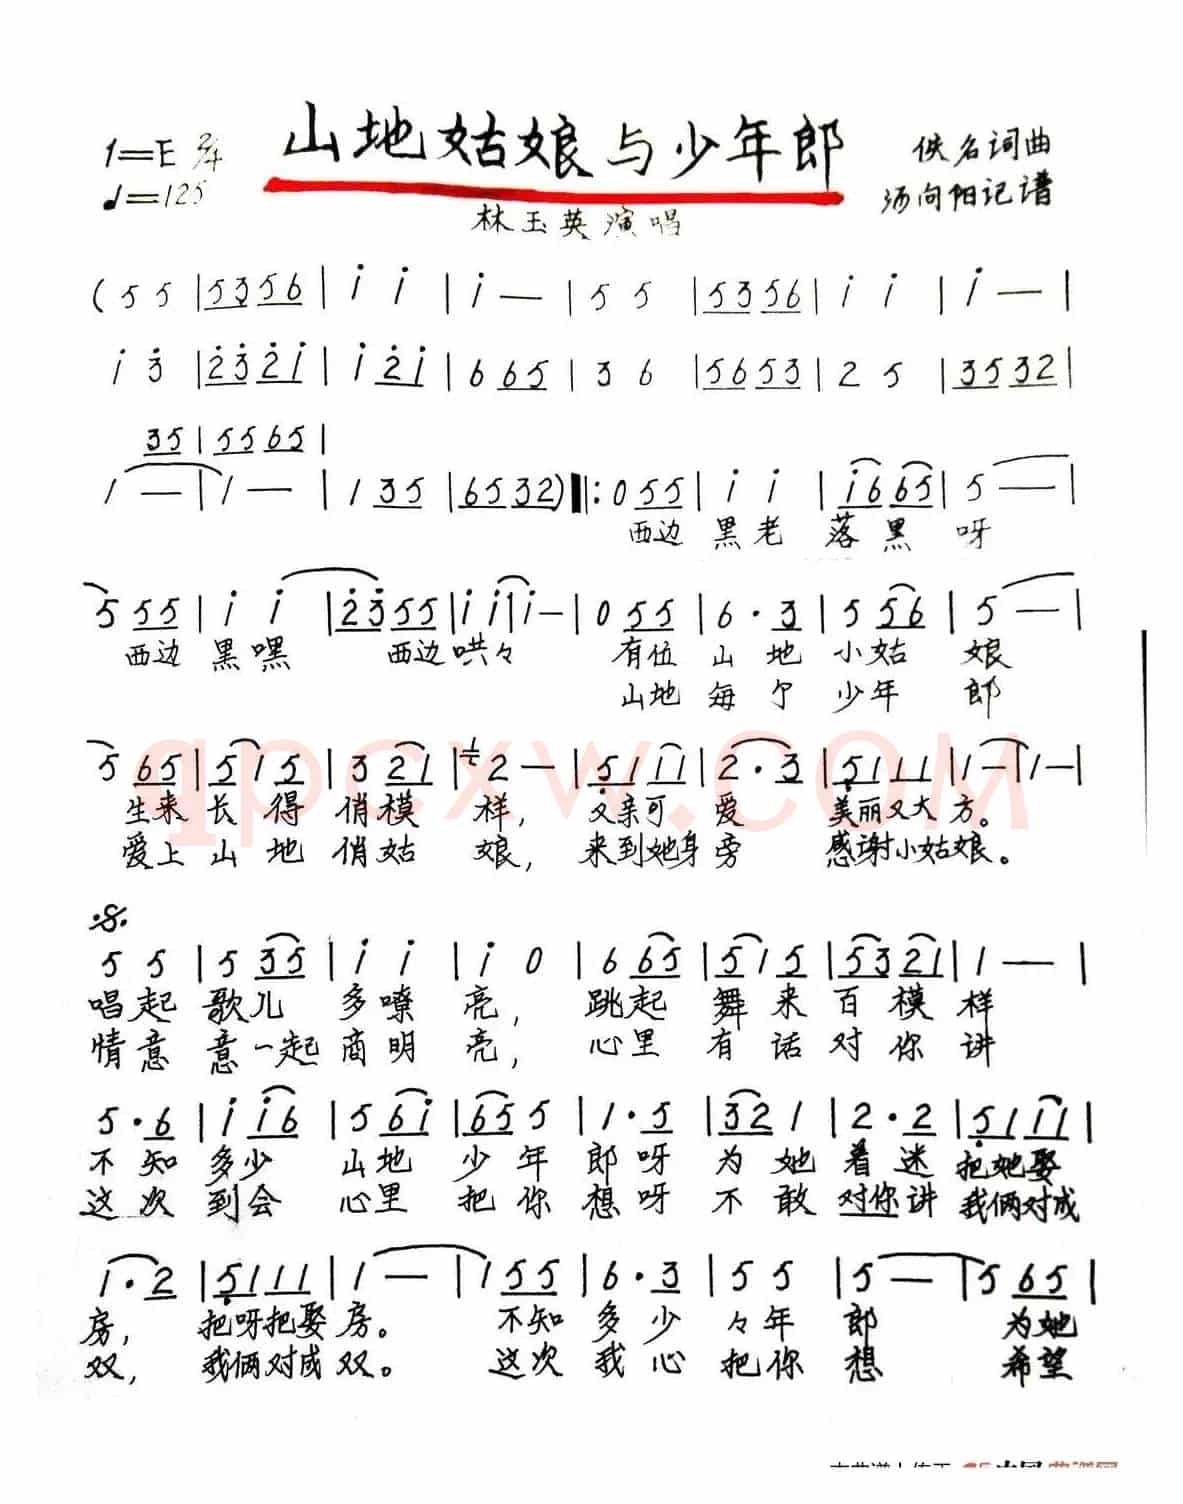 山地姑娘与少年郎
1=E 2/4
♩=125
佚名词曲
汤向阳记谱
林玉英演唱
( 5 5 | 5 3 5 6 | i i | i — | 5 5 | 5 3 5 6 | i i | i — |
i 3̇ | 2̇ 3̇ 2̇ i | i 2̇ i | 6 6 5 | 3 6 | 5 6 5 3 | 2 5 | 3 5 3 2 |
3 5 | 5 5 6 5 |
1 — | 1 — | 1 3 5 | 6 5 3 2 ) ‖: 0 5 5 | i i | i 6 6 5 | 5 — |
西边 黑老 落黑 呀
5 5 5 | i i | 2̇ 3̇ 5 5 | i i | i — | 0 5 5 | 6 · 3 | 5 5 6 | 5 — |
西边 黑嘿 西边哄々 有位 山地 小姑 娘
山地 每个 少年 郎
5 6 5 | 5 1 5 | 3 2 1 | 2 — | 5̣ 1 1 1 | 2 · 3 | 5̣ 1 1 1 | 1 — | 1 — |
生来 长得 俏模 样, 又亲可 爱 美丽又大 方。
爱上 山地 俏姑 娘, 来到她身 旁 感谢小姑娘。
𝄋
5 5 | 5 3 5 | i i | i 0 | 6 6 5 | 5 1 5 | 5 3 2 1 | 1 — |
唱起 歌儿 多嘹 亮, 跳起 舞来 百模 样
情意 意一起 商明 亮, 心里 有话 对你 讲
5 · 6 | i i 6 | 5 6 i | 6 5 5 | 1 · 5 | 3 2 1 | 2 · 2 | 5̣ 1 1 1 |
不知 多少 山地 少年 郎呀 为她 着迷 把她娶
这次 到会 心里 把你 想呀 不敢 对你讲 我俩对成
1 · 2 | 5̣ 1 1 1 | 1 — | 1 5 5 | 6 · 3 | 5 5 | 5 — | 5 6 5 |
房, 把呀把娶 房。 不知 多少 々年 郎 为她
双, 我俩对成 双。 这次 我心 把你 想 希望
qpcxw.com